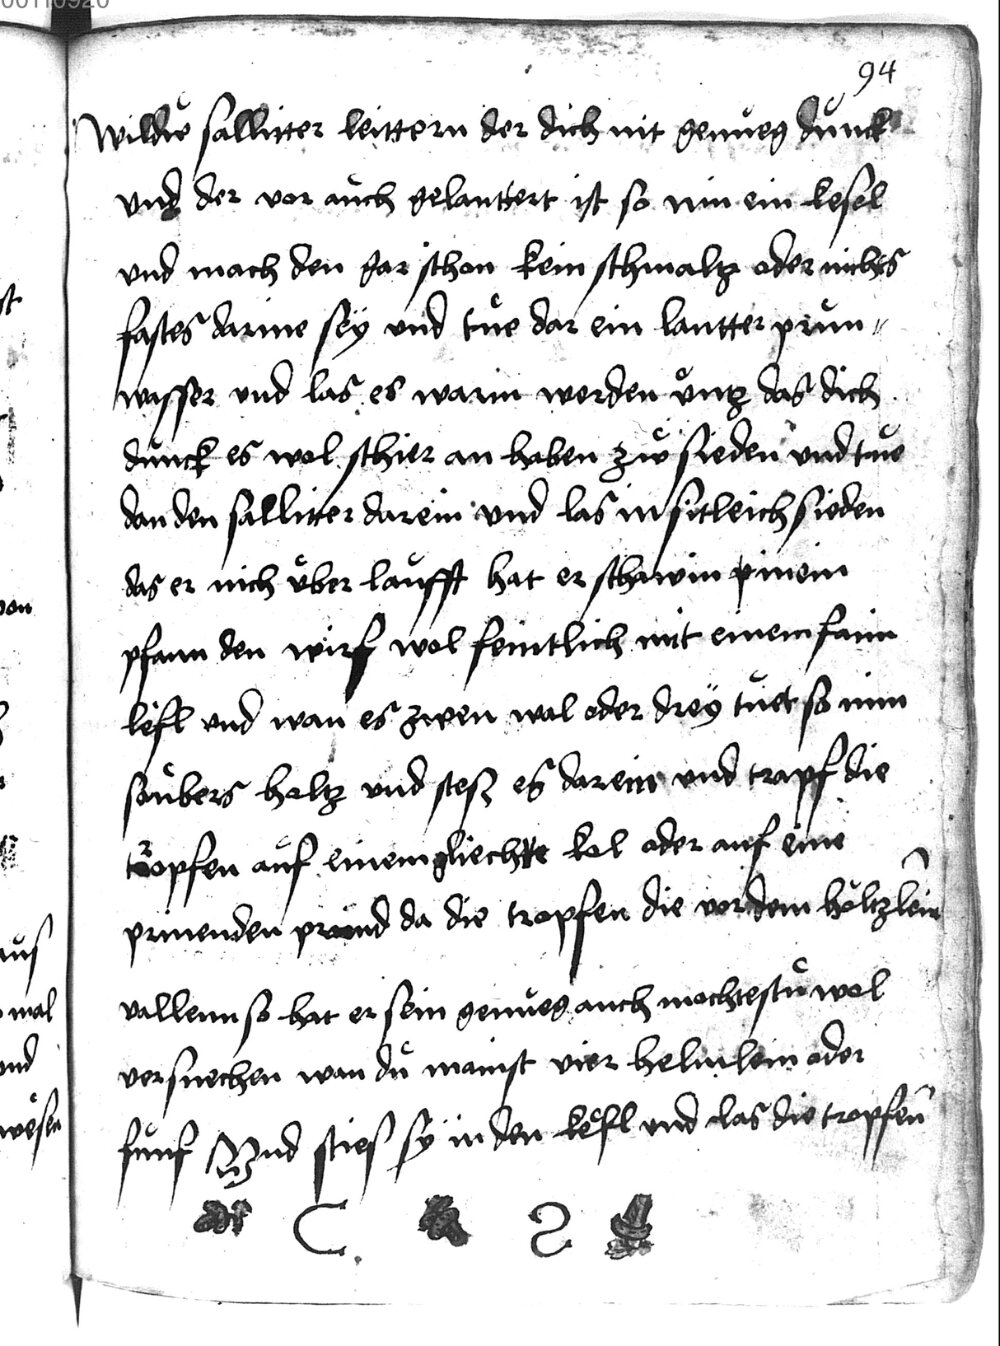 94
Wildw sallitter leittern der dich nit genueg dunck
vnd der vor auch gelauttert ist so nim ein kesel
vnd mach den gar schon kein schmaltz oder nichts
fastes darine seÿ vnd tue dar ein lautter prun〃
wasser vnd las es warm werden üntz das dich
dunck es wol schier an haben zw sieden vnd tue
dan den sallitter darein vnd las in sitleich sieden
das er nich über laufft hat er schawm in ein
pfann den wirf wol feintlich mit einem faim
lefl vnd wan es zwen wal oder dreÿ tuet so nim
saubers holtz vnd stesz es darein vnd trapf die
tropfen auf einem gliechte kol oder auf eine
prinenden prand da die tropfen die vor dem holtzlein
vallenn so hat er sein genueg auch mochtestu wol
versuechen wan du mainst vier helmlein oder
funf Vnd sties sÿ in den kesl vnd las die tropfen